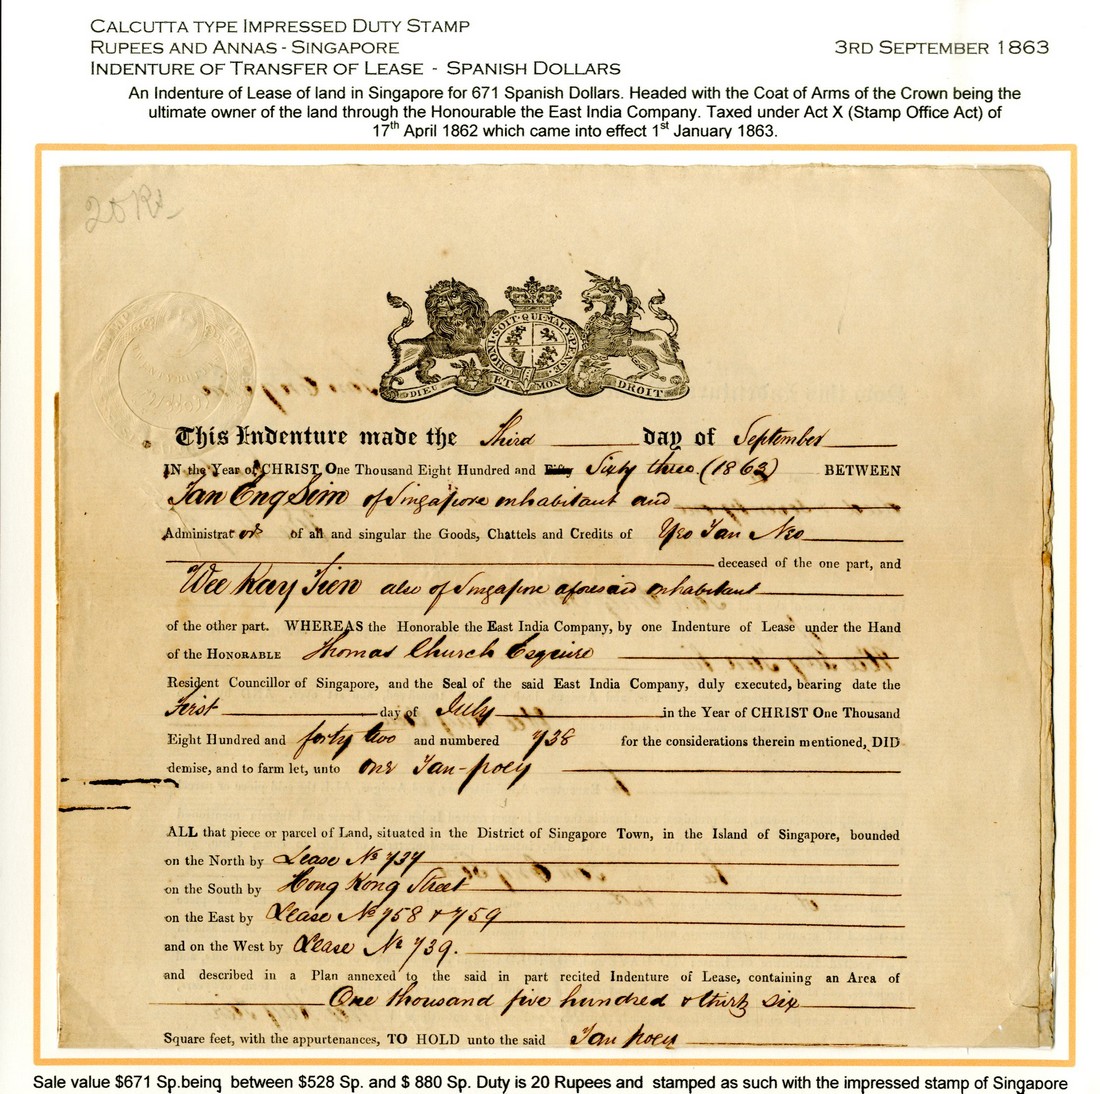 CALCUTTA TYPE IMPRESSED DUTY STAMP
RUPEES AND ANNAS - SINGAPORE
3RD SEPTEMBER 1863
INDENTURE OF TRANSFER OF LEASE - SPANISH DOLLARS
An Indenture of Lease of land in Singapore for 671 Spanish Dollars. Headed with the Coat of Arms of the Crown being the
ultimate owner of the land through the Honourable the East India Company. Taxed under Act X (Stamp Office Act) of
17th April 1862 which came into effect 1st January 1863.
20 Rs
HONI·SOIT·QUI·MAL·Y·PENSE
DIEU ET MON DROIT
This Indenture made the Third day of September
IN the Year of CHRIST One Thousand Eight Hundred and Fifty Sixty three (1863) BETWEEN
Tan Eng Sim of Singapore inhabitant and
Administrator of all and singular the Goods, Chattels and Credits of Yeo Tan Neo
deceased of the one part, and
Wee Kay Tien also of Singapore aforesaid inhabitant
of the other part. WHEREAS the Honorable the East India Company, by one Indenture of Lease under the Hand
of the HONORABLE Thomas Church Esquire
Resident Councillor of Singapore, and the Seal of the said East India Company, duly executed, bearing date the
First day of July in the Year of CHRIST One Thousand
Eight Hundred and forty two and numbered 738 for the considerations therein mentioned, DID
demise, and to farm let, unto one Tan-poey
ALL that piece or parcel of Land, situated in the District of Singapore Town, in the Island of Singapore, bounded
on the North by Lease No 737
on the South by Hong Kong Street
on the East by Lease No 758 & 759
and on the West by Lease No 739.
and described in a Plan annexed to the said in part recited Indenture of Lease, containing an Area of
One thousand five hundred & thirty six
Square feet, with the appurtenances, TO HOLD unto the said Tan poey
Sale value $671 Sp.being between $528 Sp. and $ 880 Sp. Duty is 20 Rupees and stamped as such with the impressed stamp of Singapore